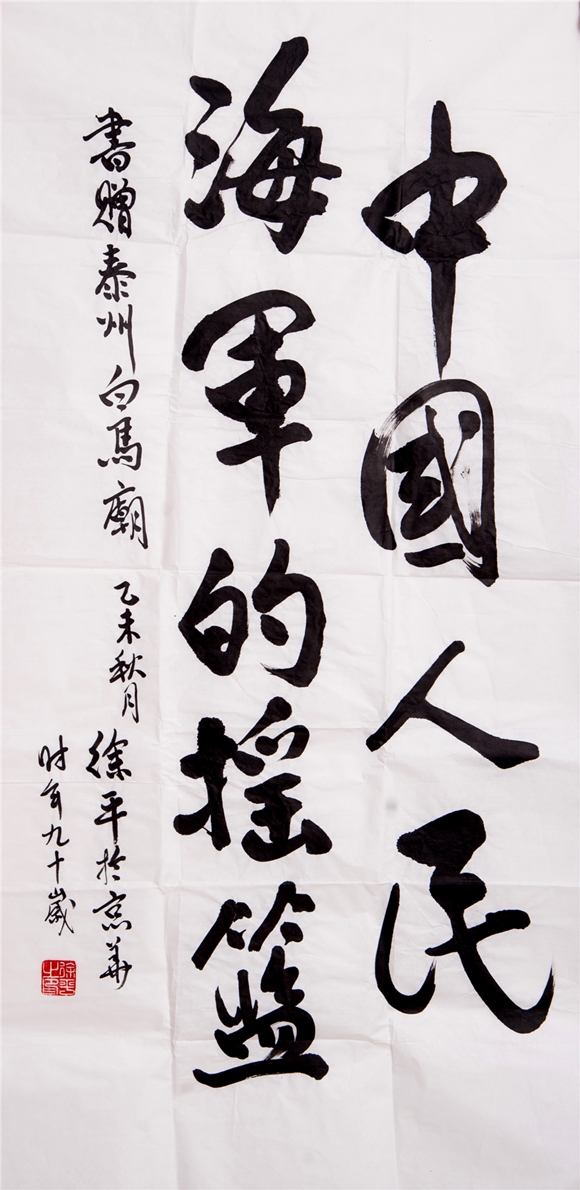 中國人民
海軍的摇籃
書贈泰州白馬廟
乙未秋月
徐平於京華
时年九十歲